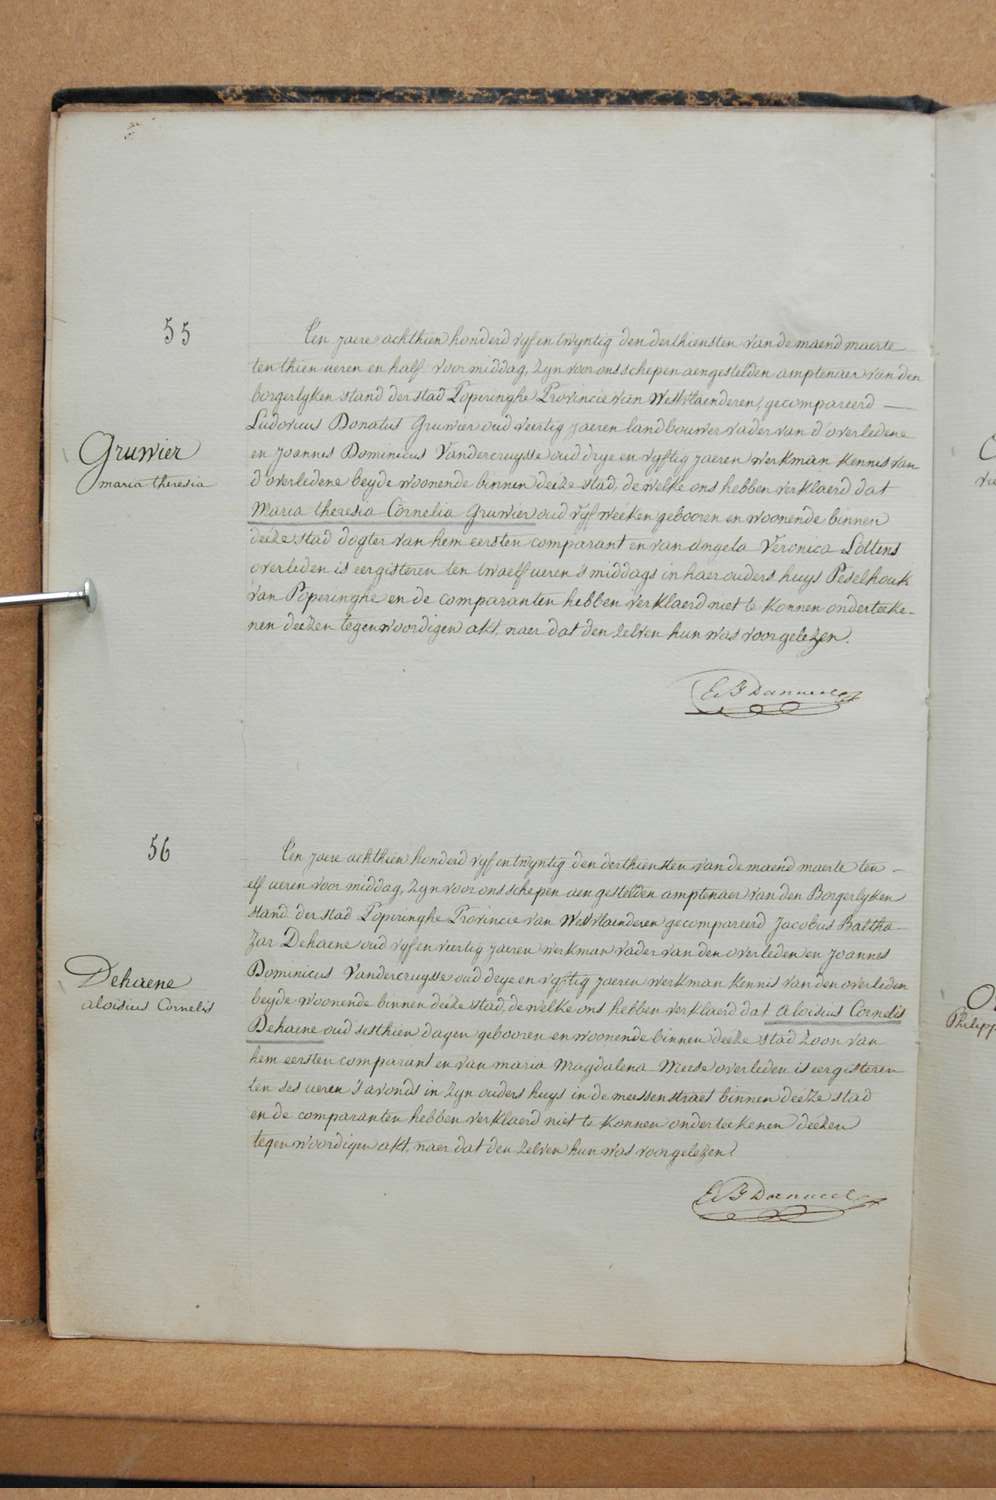 55
Gruwier
maria theresia
Ten jaere achthien honderd vyf en twyntig den derthiensten van de maend maerte
ten thien ueren en half voor middag, zyn voor ons schepen aengestelden amptenaer van den
borgerlyken stand der stad Poperinghe Provincie van Westvlaenderen, gecompareerd —
Ludovicus Donatus Gruwier oud veertig jaeren landbouwer vader van d'overledene
en Joannes Dominicus Vandercruysse oud drye en vyftig jaeren werkman kennis van
d'overledene beyde woonende binnen deeze stad, de welke ons hebben verklaerd dat
Maria theresia Cornelia Gruwier oud vyf weeken gebooren en woonende binnen
deeze stad dogter van hem eersten comparant en van angela Veronica Lottens
overleden is eergisteren ten twaelf ueren s'middags in haer ouders huys Peselhoek
van Poperinghe en de comparanten hebben verklaerd niet te konnen onderteeke-
nen deezen tegenwoordigen akt, naer dat den zelven hun was voorgelezen.
56
Dehaene
aloisius Cornelis
Ten jaere achthien honderd vyf en twyntig den derthiensten van de maend maerte ten —
elf ueren voor middag, zyn voor ons schepen aengestelden amptenaer van den Borgerlyken
stand der stad Poperinghe Provincie van Westvlaenderen gecompareerd Jacobus Baltha-
zar Dehaene oud vyf en veertig jaeren werkman vader van den overleden en Joannes
Dominicus Vandercruysse oud drye en vyftig jaeren werkman kennis van den overleden
beyde woonende binnen deeze stad, de welke ons hebben verklaerd dat aloisius Cornelis
Dehaene oud sesthien dagen gebooren en woonende binnen deeze stad zoon van
hem eersten comparant en van maria Magdalena Meese overleden is eergisteren
ten ses ueren s'avonds in zyn ouders huys in de meessenstraet binnen deeze stad
en de comparanten hebben verklaerd niet te konnen onderteekenen deezen
tegenwoordigen akt, naer dat den zelven hun was voorgelezen.
Philipp